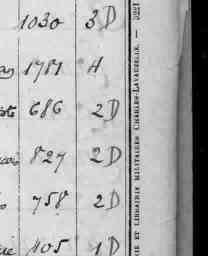 1030 3D
1781 H
686 2D
827 2D
758 2D
105 1D
IE ET LIBRAIRIE MILITAIRES CHARLES-LAVAUZELLE. — 322